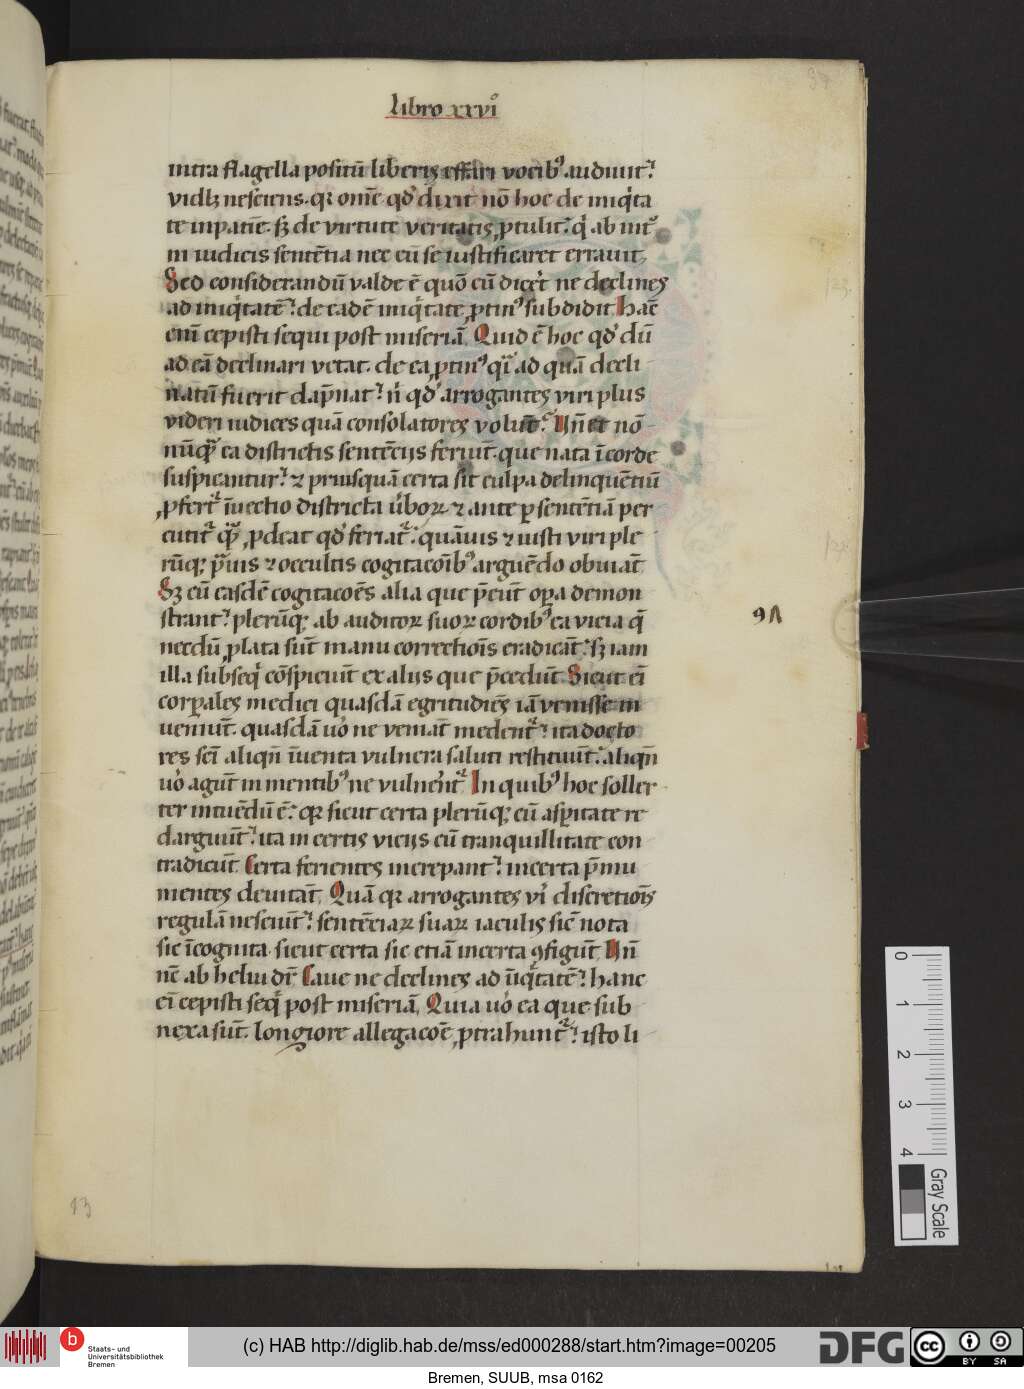 Libro xxvi⁹
intra flagella positū liberis effari vocib⁹ audiuit.
vidꝫ nesciens. qꝛ om̄e qd̓ dixit nō hoc de iniq̇ta
te inpatīe. sꝫ de virtute veritatis ꝓtulit. q̇ ab int⁹
ni iudicis sentētia nec cū se iustificaret errauit.
Sed considerandū valde ē quō cū dicer̓t ne declines
ad iniq̇tatē? de eadē iniq̇tate ꝓtin⁹ subdidit Hāc
eni̅ cepisti sequi post miseriā. Quid ē hoc qd̓ dū
ad eā declinari vetat. de ea ꝓtin⁹ q̄ꝛ ad quā decli
natū fuerit dāpnat? n̓ qd̓ arrogantes viri plus
videri iudices quā consolatores volūt. Vn̄ et nō
nūq̄ ea districtis sentēcijs feriūt. que nata ī corde
suspicantur? ⁊ priusquā certa sit culpa delinquētiū
ꝓfert̉ īuectio districta u̓boꝝ ⁊ ante ꝑ sentētiā per
cutit̉ q̄ ꝓdeat qd̓ feriat̉. quāuis ⁊ iusti viri ple
rūqꝫ p̄uis ⁊ occultis cogitacōib⁹ arguēdo obuiāt
Sꝫ cū easdē cogitacōes alia que p̄eūt oꝑa demon
strant? plerūqꝫ ab auditoꝝ suoꝝ cordib⁹ ea vicia q̄
necdū ꝓlata sūt manu correctiōis eradicāt. sꝫ iam
illa subseq̇ cōspiciūt ex alijs que p̄cedūt. Sicut ei̅
corꝑales medici quasdā egritudies iā venisse in
ueniūt. quasdā uo̓ ne veniāt medent̉? ita docto
res sci̅ aliqn̄ īuenta vulnera saluti restituūt. aliqn̄
uo̓ agūt in mentib⁹ ne vulnen̓t̉ In quib⁹ hoc soller
ter intuēdū ē. qꝛ sicut certa plerūqꝫ cū asꝑitate re
darguūt? ita in certis vicijs cū tranquillitate con
tradicūt. Certa ferientes increpant? incerta p̄mu
nientes deuitāt. Quā qꝛ arrogantes vi̓ discretiōis
regulā nesciūt? sentēciaꝝ suaꝝ iaculis sic̄ nota
sic īcognita. sicut certa sic etiā incerta ꝯfigūt Vn̄
nc̄ ab heliu di̅r Caue ne declines ad īiq̇tatē? hanc
ei̅ cepisti seq̇ post miseriā. Quia uo̓ ea que sub
nexa sūt. longiore allegacōe ꝓtrahunt̉? isto li
13
0
1
2
3
4
Gray Scale
Staats- und
Universitätsbibliothek
Bremen
(c) HAB http://diglib.hab.de/mss/ed000288/start.htm?image=00205
DFG
cc BY SA
Bremen, SUUB, msa 0162